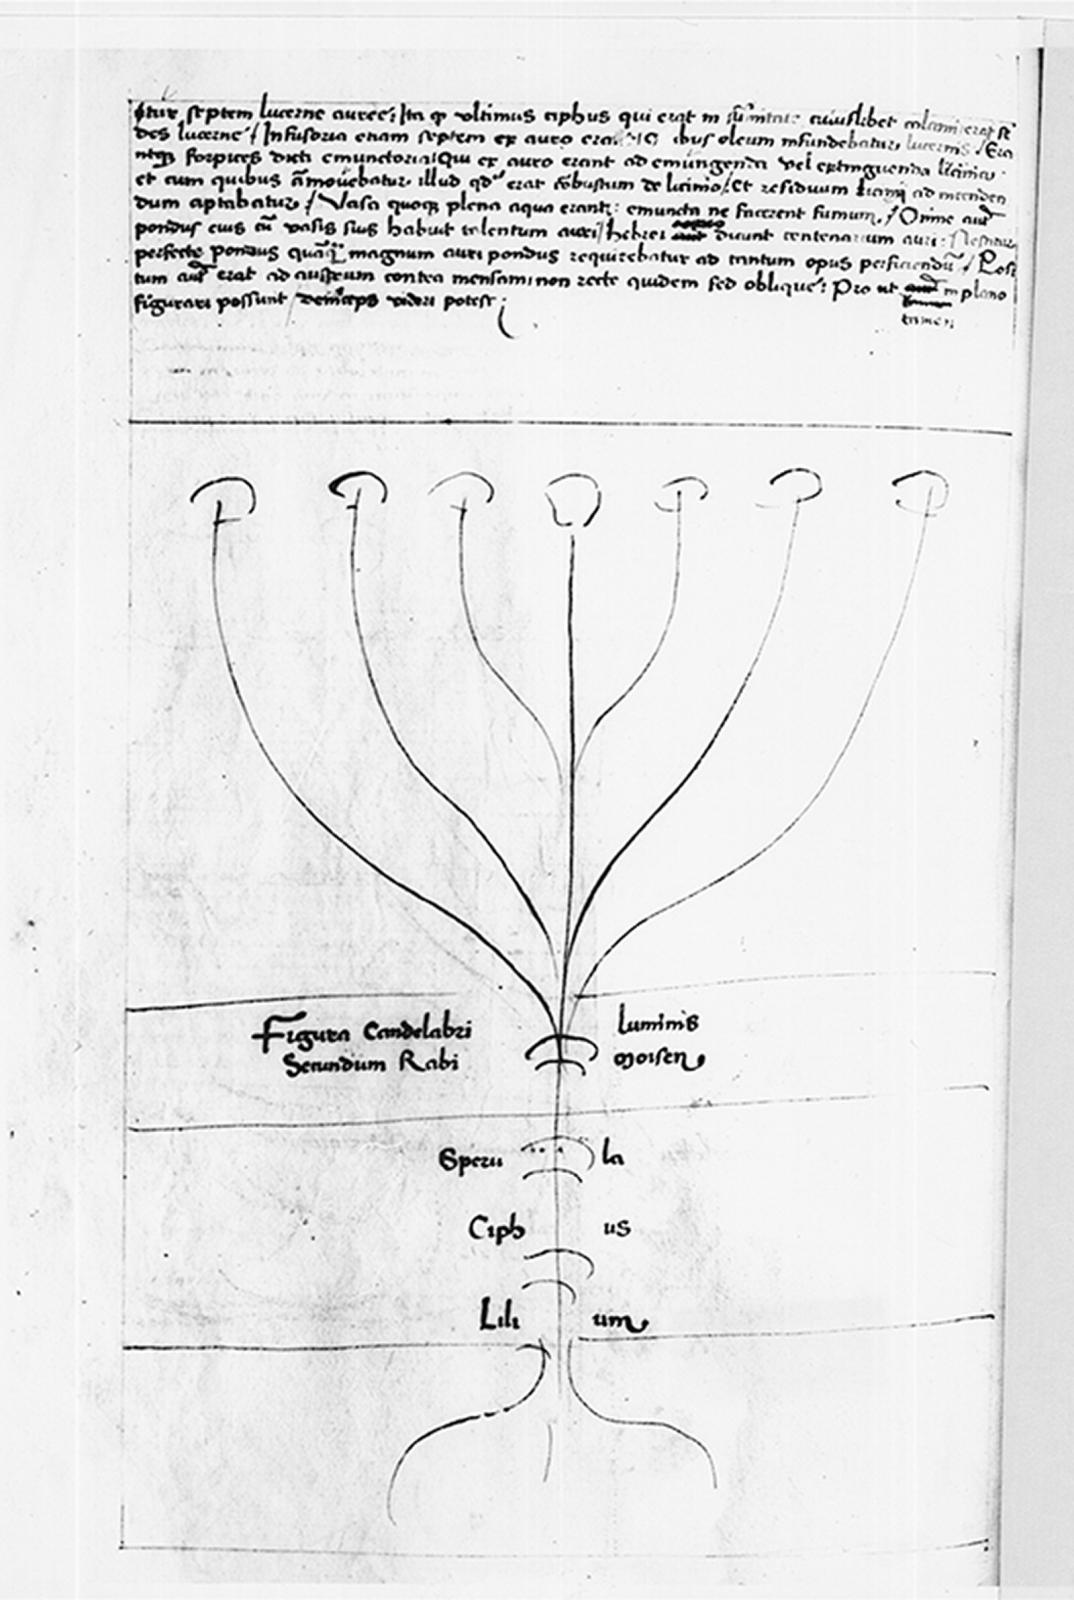 septem lucerne auree: Ita ꝙ ultimus ciphus qui erat in cuiuslibet
des lucerne / Infusoria etiam septem ex auro ibus oleum infundebatur lucernis / Era
forpices dicti emunctoria Qui ex auro erant ad emungenda vel extinguenda
et cum quibus amouebatur illud qd erat cōbustum de licinio / Et residuum licinij ad incenden
dum aptabatur / Vasa quoqꝫ plena aqua erant: emuncta ne facerent fumum / Omne
pondus eius cū vasis suis habuit talentum auri / hebrei dicunt centenarium auri:
perfecte pondus magnum auri pondus requirebatur ad tantum opus perficiendū / Posi
tum erat ad austrum contra mensam non recte quidem sed oblique: Pro ut in plano
tamen
figurari possunt videri potest
Figura Candelabri luminis
Secundum Rabi moisen
Speru la
Ciph us
Lili um